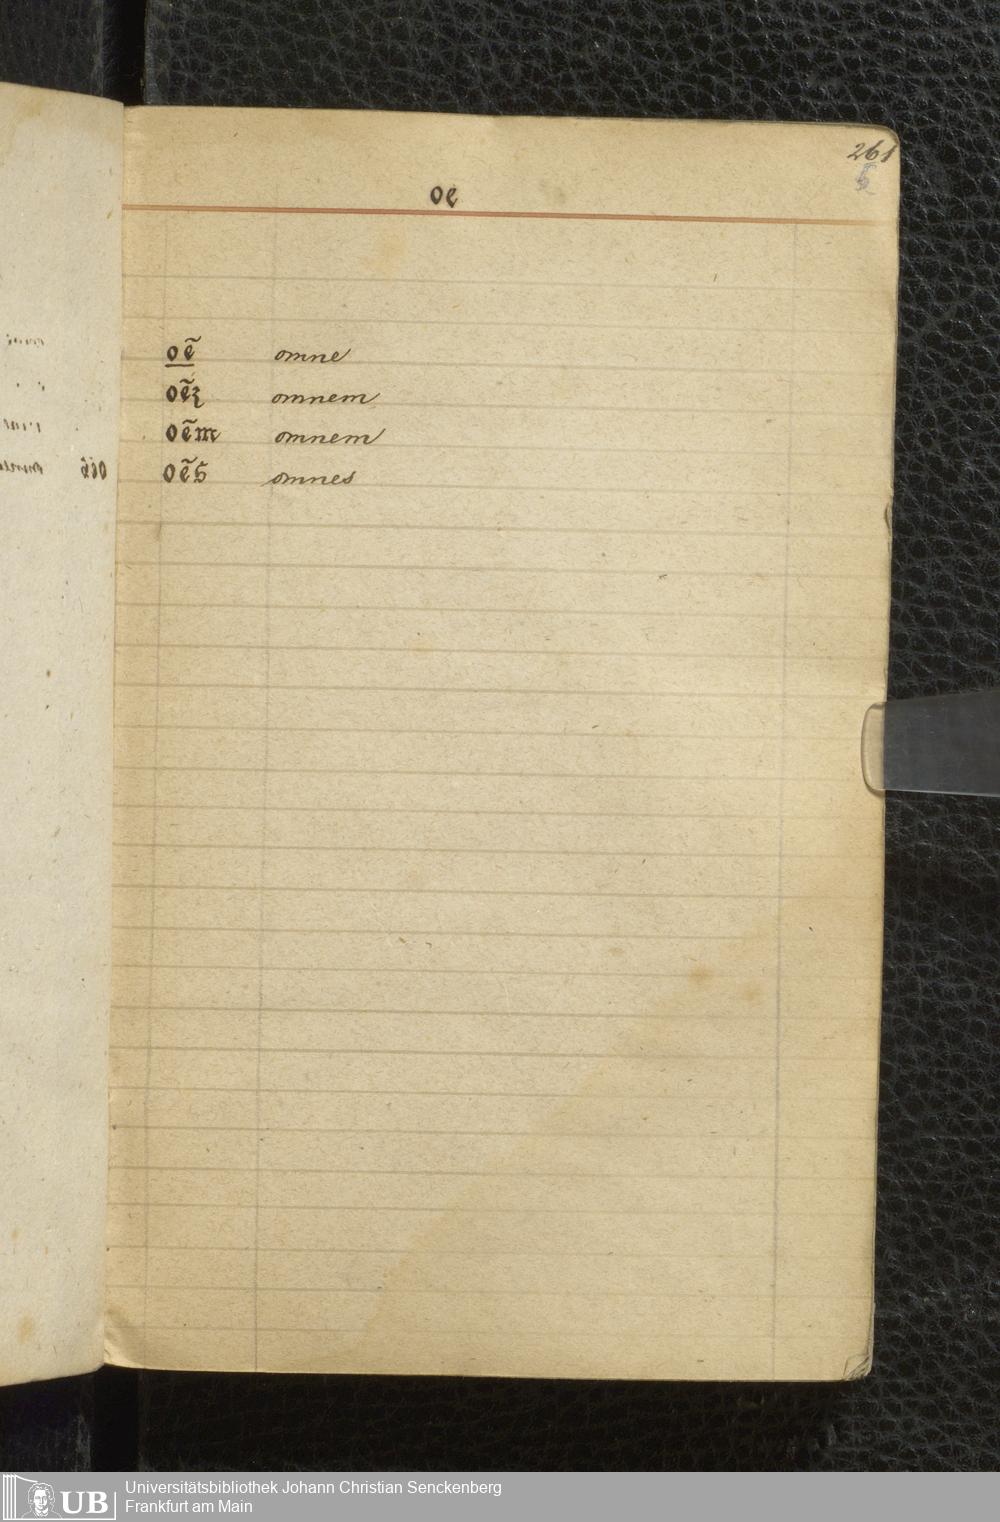 261
oe
oẽ omne
oẽꝫ omnem
oẽm omnem
oẽs omnes
UB
Universitätsbibliothek Johann Christian Senckenberg
Frankfurt am Main